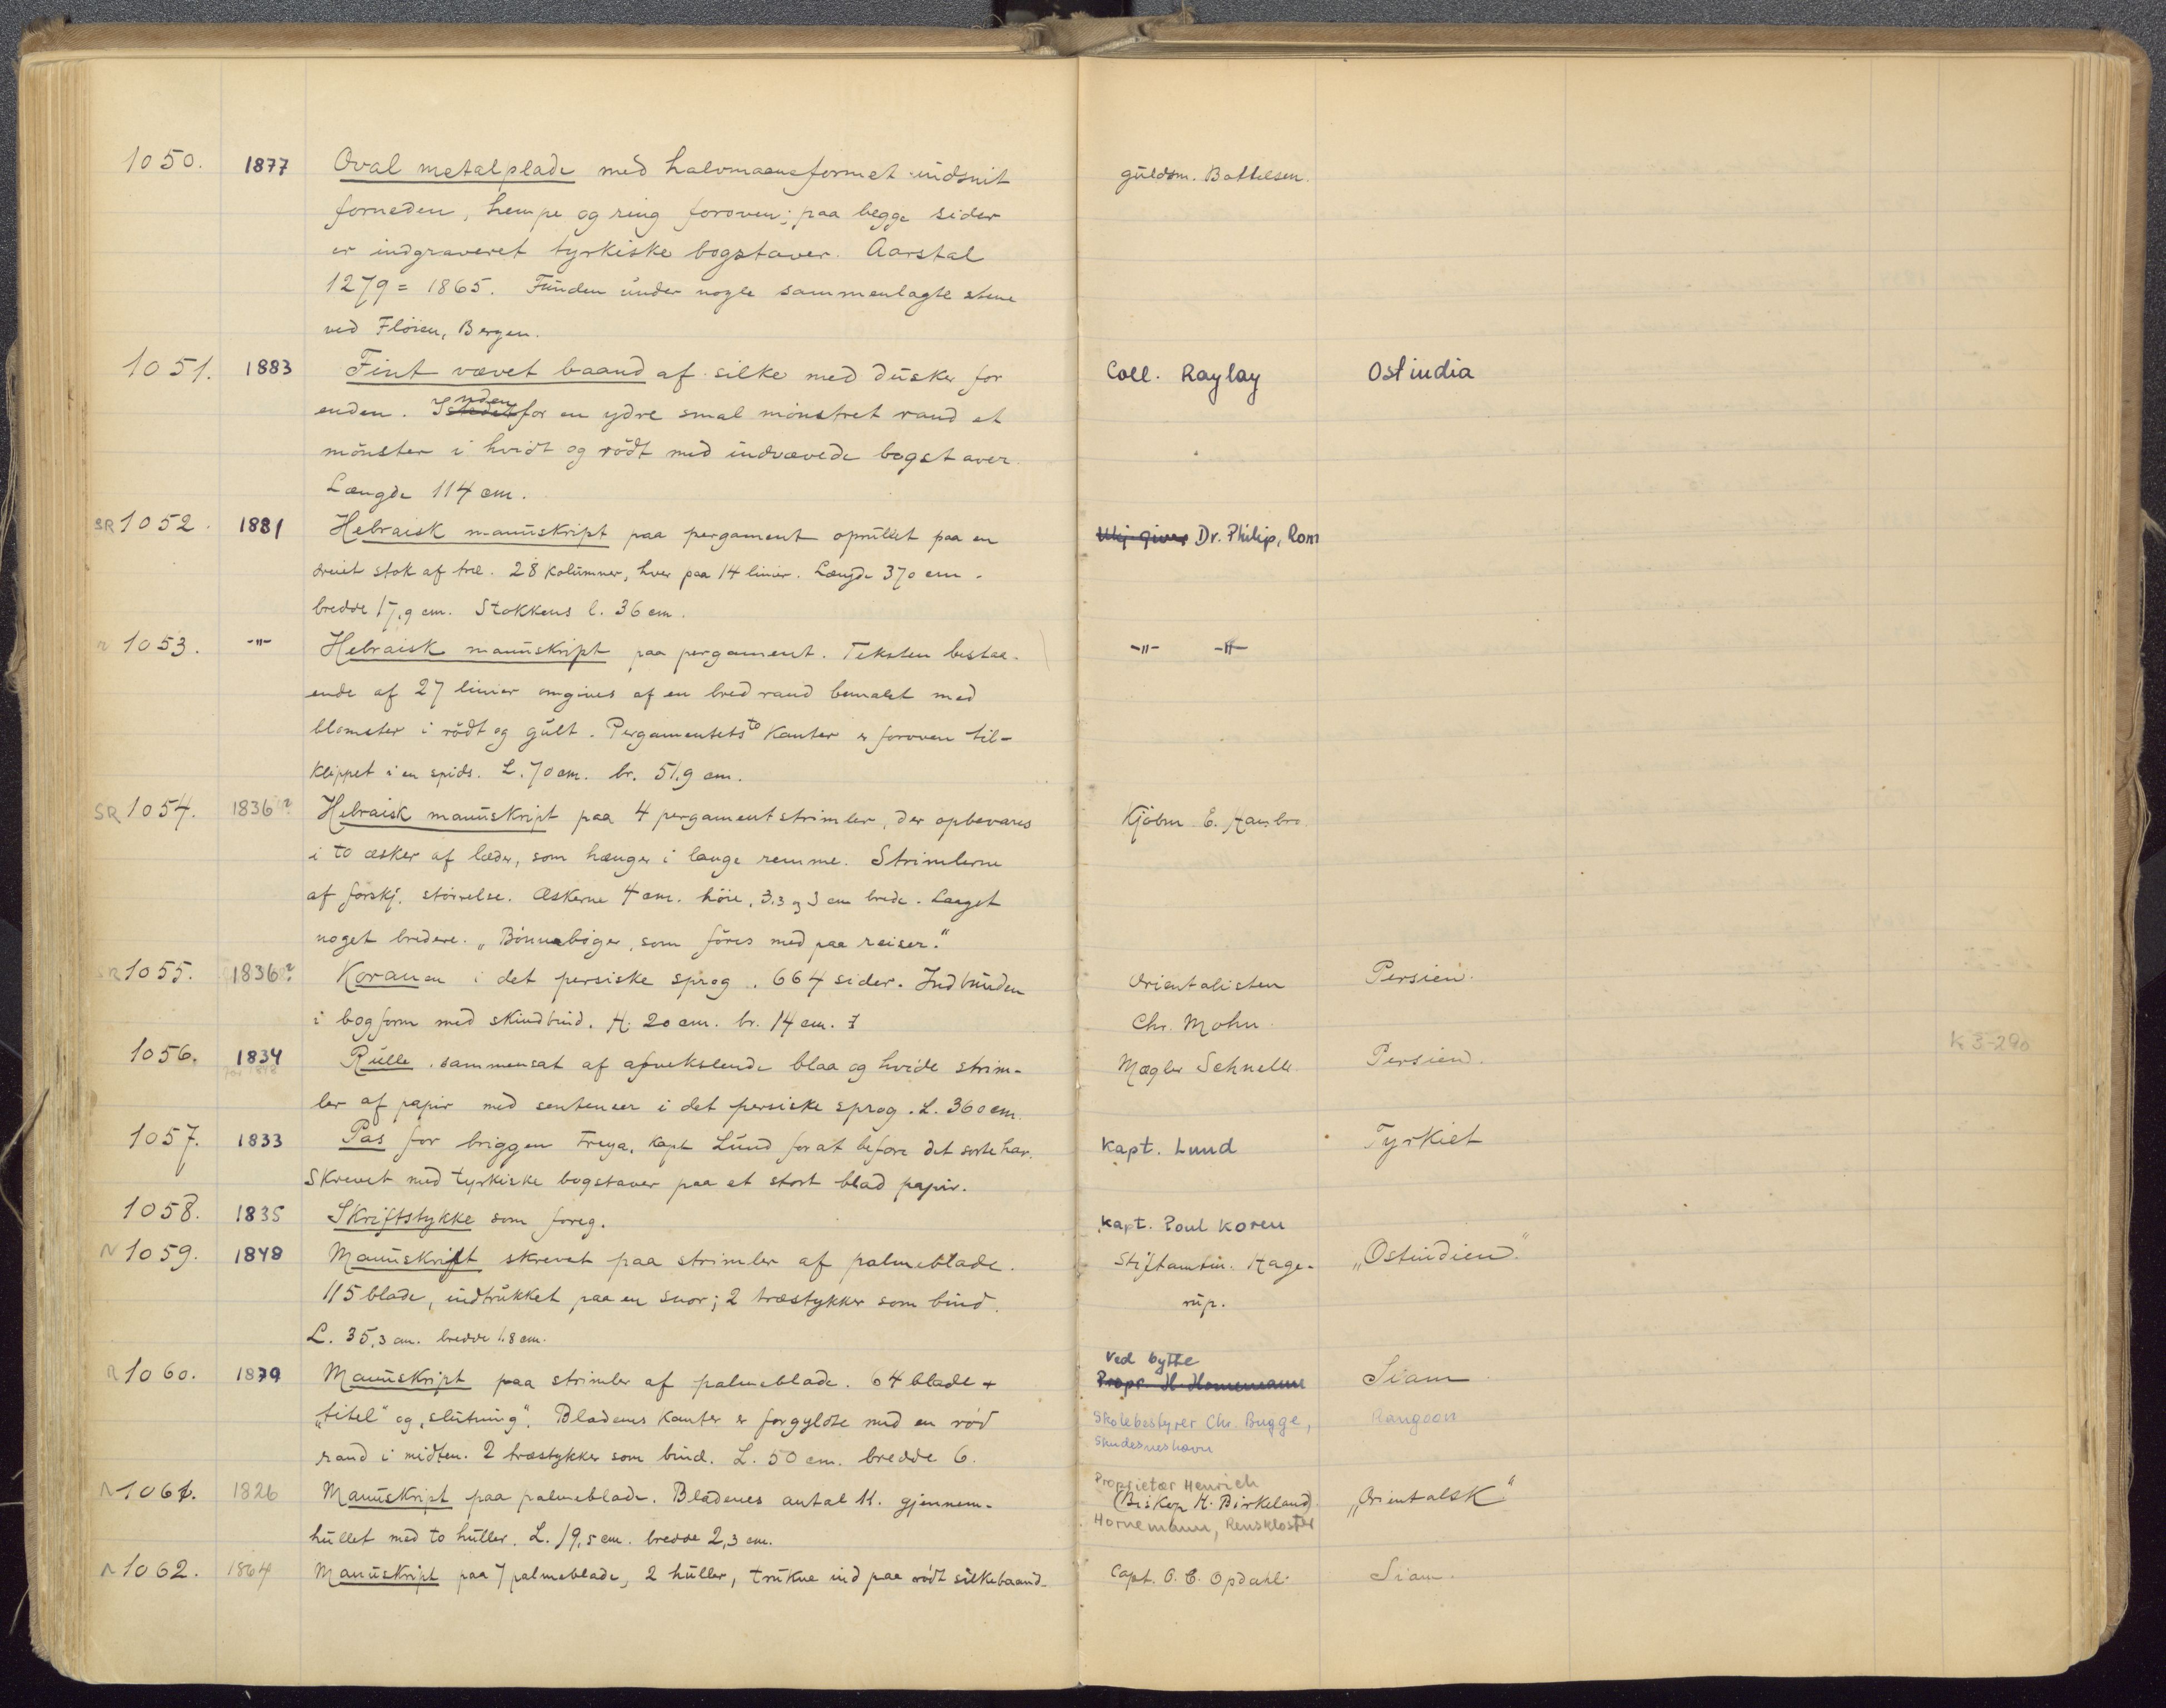 1050. 1877 Oval metalplade med halvmaaneformet indsnit guldsm. Bottelsen.
forneden, hempe og ring foroven; paa begge sider
er indgraveret tyrkiske bogstaver. Aarstal
1279 = 1865. Funden under nogle sammenlagte stene
ved Fløien, Bergen.
1051. 1883 Fint vævet baand af silke med dusker for Coll. Raylay Ostindia
enden. Inden for en ydre smal mønstret rand et
mønster i hvidt og rødt med indvævede bogstaver.
Længde 114 cm.
SR 1052. 1881 Hebraisk manuskript paa pergament oprullet paa en Ukj. giver Dr. Philip, Rom
dreiet stok af træ. 28 kolumner, hver paa 14 linier. Længde 370 cm.
bredde 17,9 cm. Stokkens l. 36 cm.
1053. -"- Hebraisk manuskript paa pergament. Teksten bestaa- -"- -"-
ende af 27 linier omgives af en bred rand bemalet med
blomster i rødt og gult. Pergamentets to kanter er foroven til-
klippet i en spids. L. 70 cm. br. 51,9 cm.
SR 1054. 1836? Hebraisk manuskript paa 4 pergamentstrimler, der opbevares Kjøbm E. Hambro.
i to æsker af læder, som hænger i lange remme. Strimlerne
af forskj. størrelse. Æskerne 4 cm. höie, 3,3 og 3 cm brede. Laaget
noget bredere. „Bønnebøger, som føres med paa reiser."
SR 1055. 1836? Koranen i det persiske sprog. 664 sider. Indbunden Orientalisten Persien.
i bogform med skindbind. H. 20 cm. br. 14 cm. Chr. Mohn.
1056. 1834 Rulle, sammensat af afvekslende blaa og hvide strim- Mægler Schnelle. Persien. K 3-290
ler af papir med sentenser i det persiske sprog. L. 360 cm.
1057. 1833 Pas for briggen Freya, kapt Lund for at befare det sorte hav. Kapt. Lund Tyrkiet
Skrevet med tyrkiske bogstaver paa et stort blad papir.
1058. 1835 Skriftstykke som foreg. Kapt. Poul Koren
N 1059. 1848 Manuskript skrevet paa strimler af palmeblade. Stiftamtm. Hage- „Ostindien."
115 blade, indtrukket paa en snor; 2 træstykker som bind. rup.
L. 35,3 cm. bredde 1.8 cm.
Ved bytte
1060. 1879 Manuskript paa strimler af palmeblade. 64 blade + Propr. H. Hornemann Siam
„titel" og „slutning". Bladenes kanter er forgyldte med en rød Skolebestyrer Chr. Bugge, Rangoon
rand i midten. 2 træstykker som bind. L. 50 cm. bredde 6. Skudesneshavn
Proprietær Henrich
N 1061. 1826 Manuskript paa palmeblade. Bladenes antal 11. gjennem- (Biskop H. Birkeland) „Orientalsk"
hullet med to huller. L. 19,5 cm. bredde 2,3 cm. Hornemann, Renskloster
N 1062. 1864 Manuskript paa 7 palmeblade, 2 huller, trukne ind paa rødt silkebaand. Capt. O. C. Opdahl. Siam.